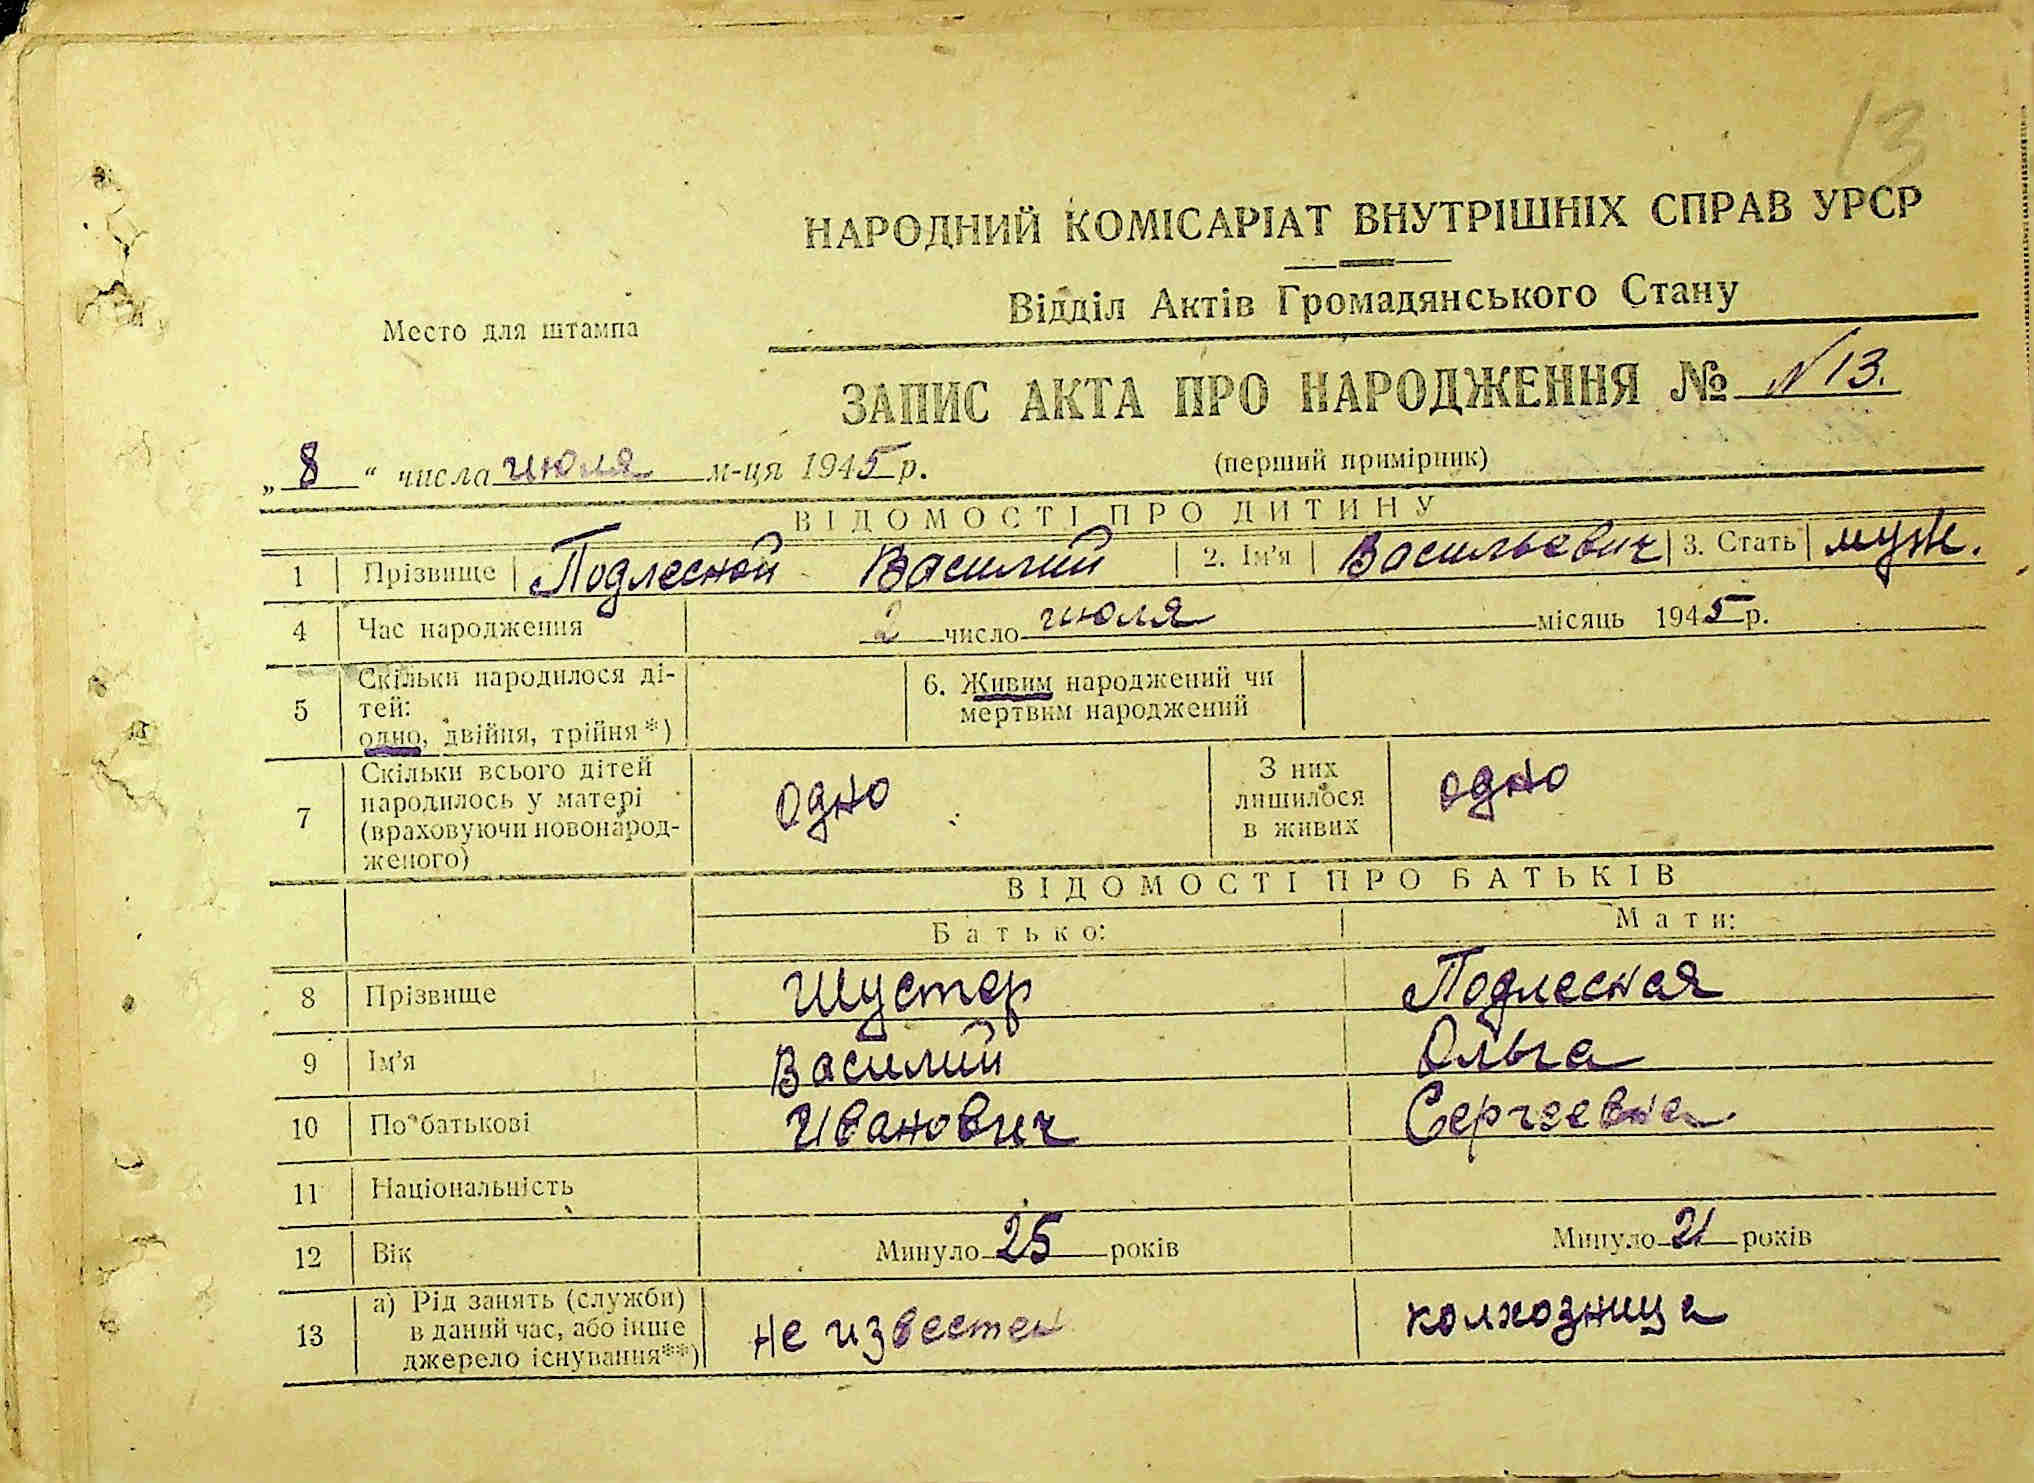 13
НАРОДНИЙ КОМІСАРІАТ ВНУТРІШНІХ СПРАВ УРСР
Відділ Актів Громадянського Стану
Место для штампа
ЗАПИС АКТА ПРО НАРОДЖЕННЯ № N 13.
„ 8 “ числа июля м-ця 1945 р.
(перший примірник)
ВІДОМОСТІ ПРО ДИТИНУ
1 Прізвище Подлесной Василий 2. Ім'я Васильевич 3. Стать муж.
4 Час народження 2 число июля місяць 1945 р.
5 Скільки народилося ді-
тей:
одно, двійня, трійня*)
6. Живим народжений чи
мертвим народжений
7 Скільки всього дітей
народилось у матері
(враховуючи новонарод-
женого)
одно
З них
лишилося
в живих
одно
ВІДОМОСТІ ПРО БАТЬКІВ
Батько: Мати:
8 Прізвище Шустер Подлесная
9 Ім'я Василий Ольга
10 По батькові Иванович Сергеевна
11 Національність
12 Вік Минуло 25 років Минуло 21 років
13 а) Рід занять (служби)
в даний час, або інше
джерело існування**)
не известен колхозница